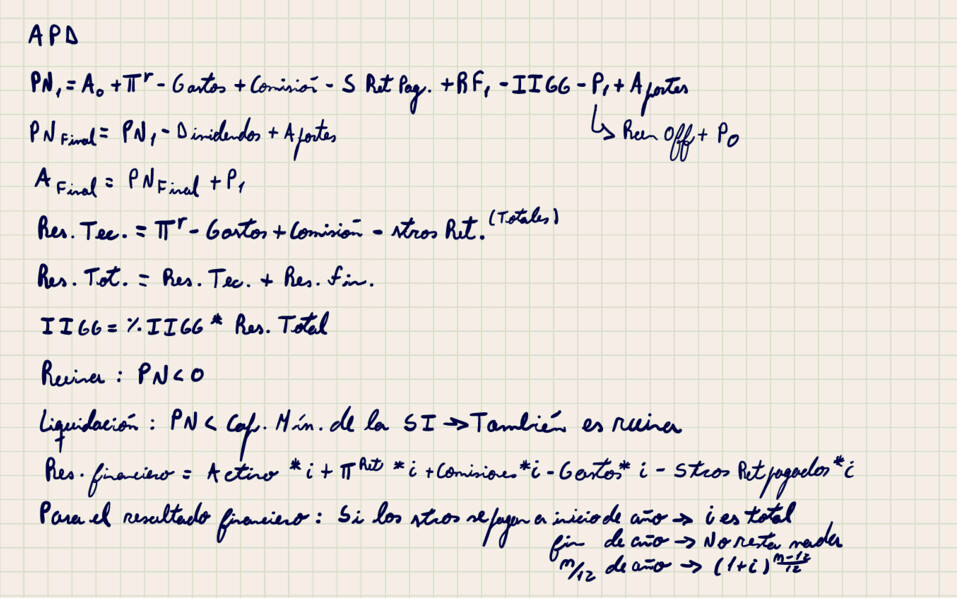 APD
PN₁ = A₀ + πʳ - Gastos + Comisión - S Ret Pag. + RF₁ - IIGG - P₁ + Aportes
↳ Run Off + P₀
PN Final = PN₁ - Dividendos + Aportes
A Final = PN Final + P₁
Res. Tec. = πʳ - Gastos + Comisión - stros Ret. (Totales)
Res. Tot. = Res. Tec. + Res. fin.
IIGG = % IIGG * Res. Total
Ruina : PN < 0
Liquidación : PN < Cap. Mín. de la SI → También es ruina
Res. financiero = Activo * i + π Ret * i + Comisiones * i - Gastos * i - Stros Ret pagados * i
Para el resultado financiero : Si los stros se pagan a inicio de año → i es total
fin de año → No resta nada
m/12 de año → (1+i)^(m-12/12)